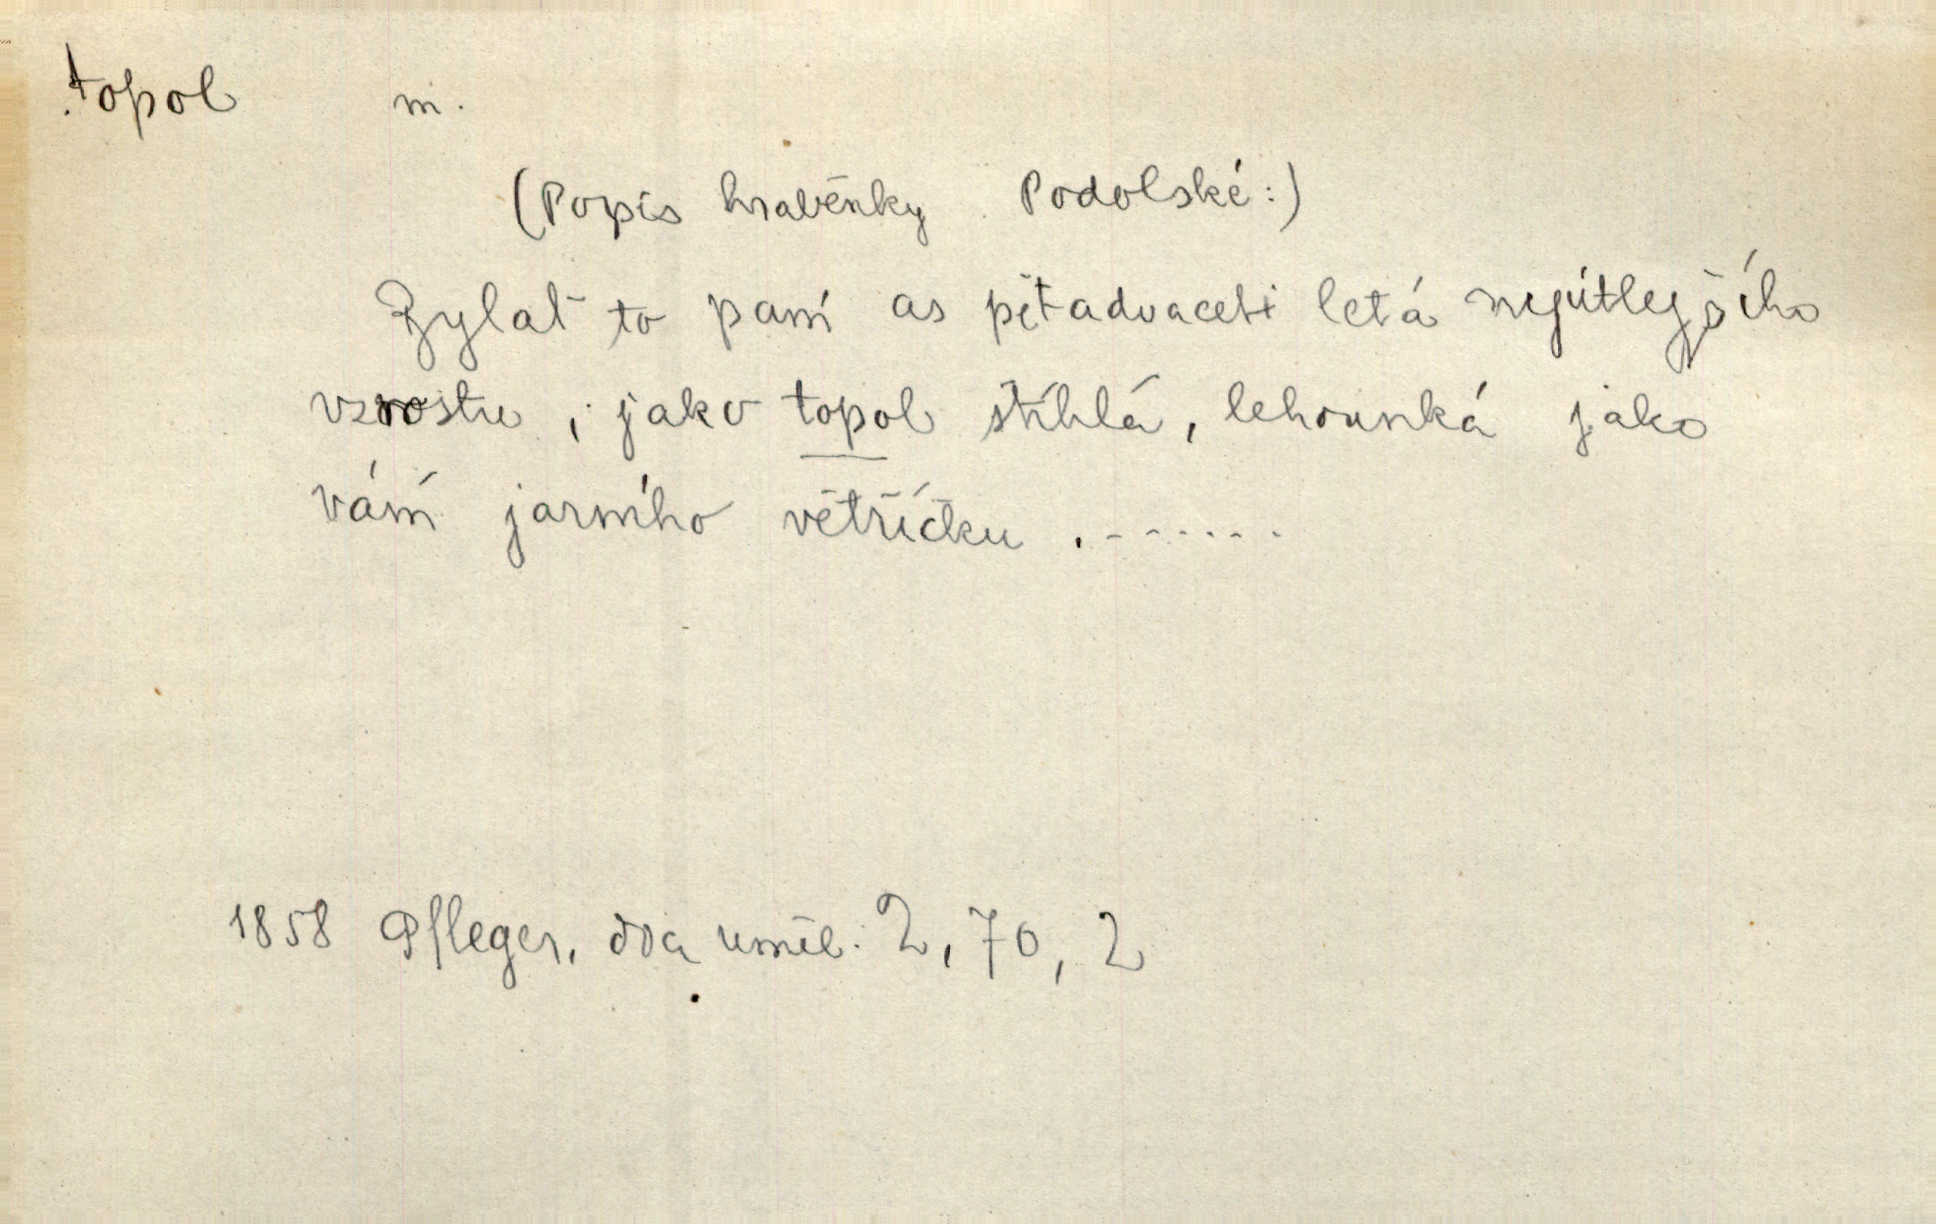 topol m.
(Popis hraběnky Podolské:)
Bylať to paní as pětadvaceti letá nejútlejšího
vzrostu, jako topol štíhlá, lehounká jako
vání jarního větříčku ........
1858 Pfleger, dva uměl. 2, 70, 2